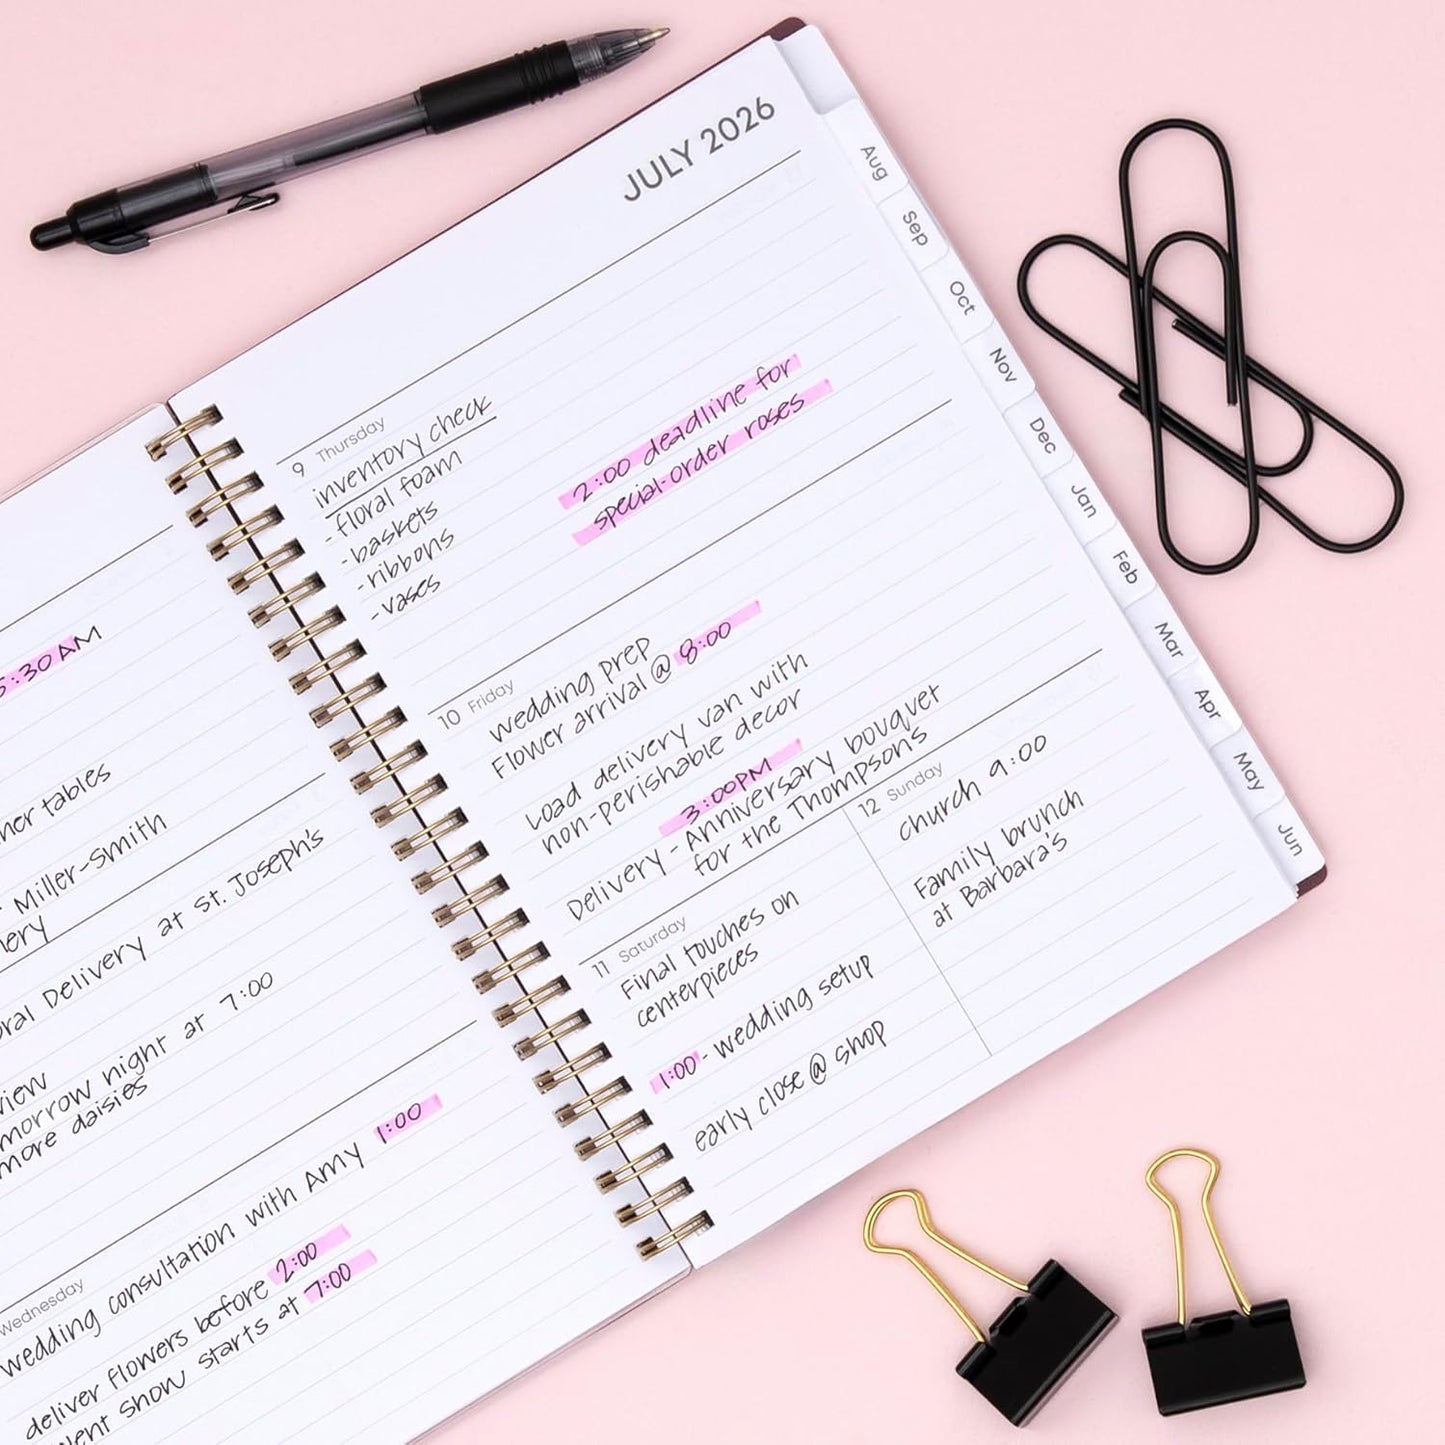 5:30 AM
tables
Miller-Smith
Delivery at St. Joseph's
night at 7:00
more daisies
Wednesday
wedding consultation with Amy 1:00
deliver flowers before 2:00
show starts at 7:00
JULY 2026
9 Thursday
inventory check
- floral foam
- baskets
- ribbons
- vases
2:00 deadline for
special-order roses
10 Friday
wedding prep
Flower arrival @ 8:00
Load delivery van with
non-perishable decor
3:00PM
Delivery - Anniversary bouquet
for the Thompsons
11 Saturday
Final touches on
centerpieces
1:00 - wedding setup
early close @ shop
12 Sunday
church 9:00
Family brunch
at Barbara's
Aug
Sep
Oct
Nov
Dec
Jan
Feb
Mar
Apr
May
Jun